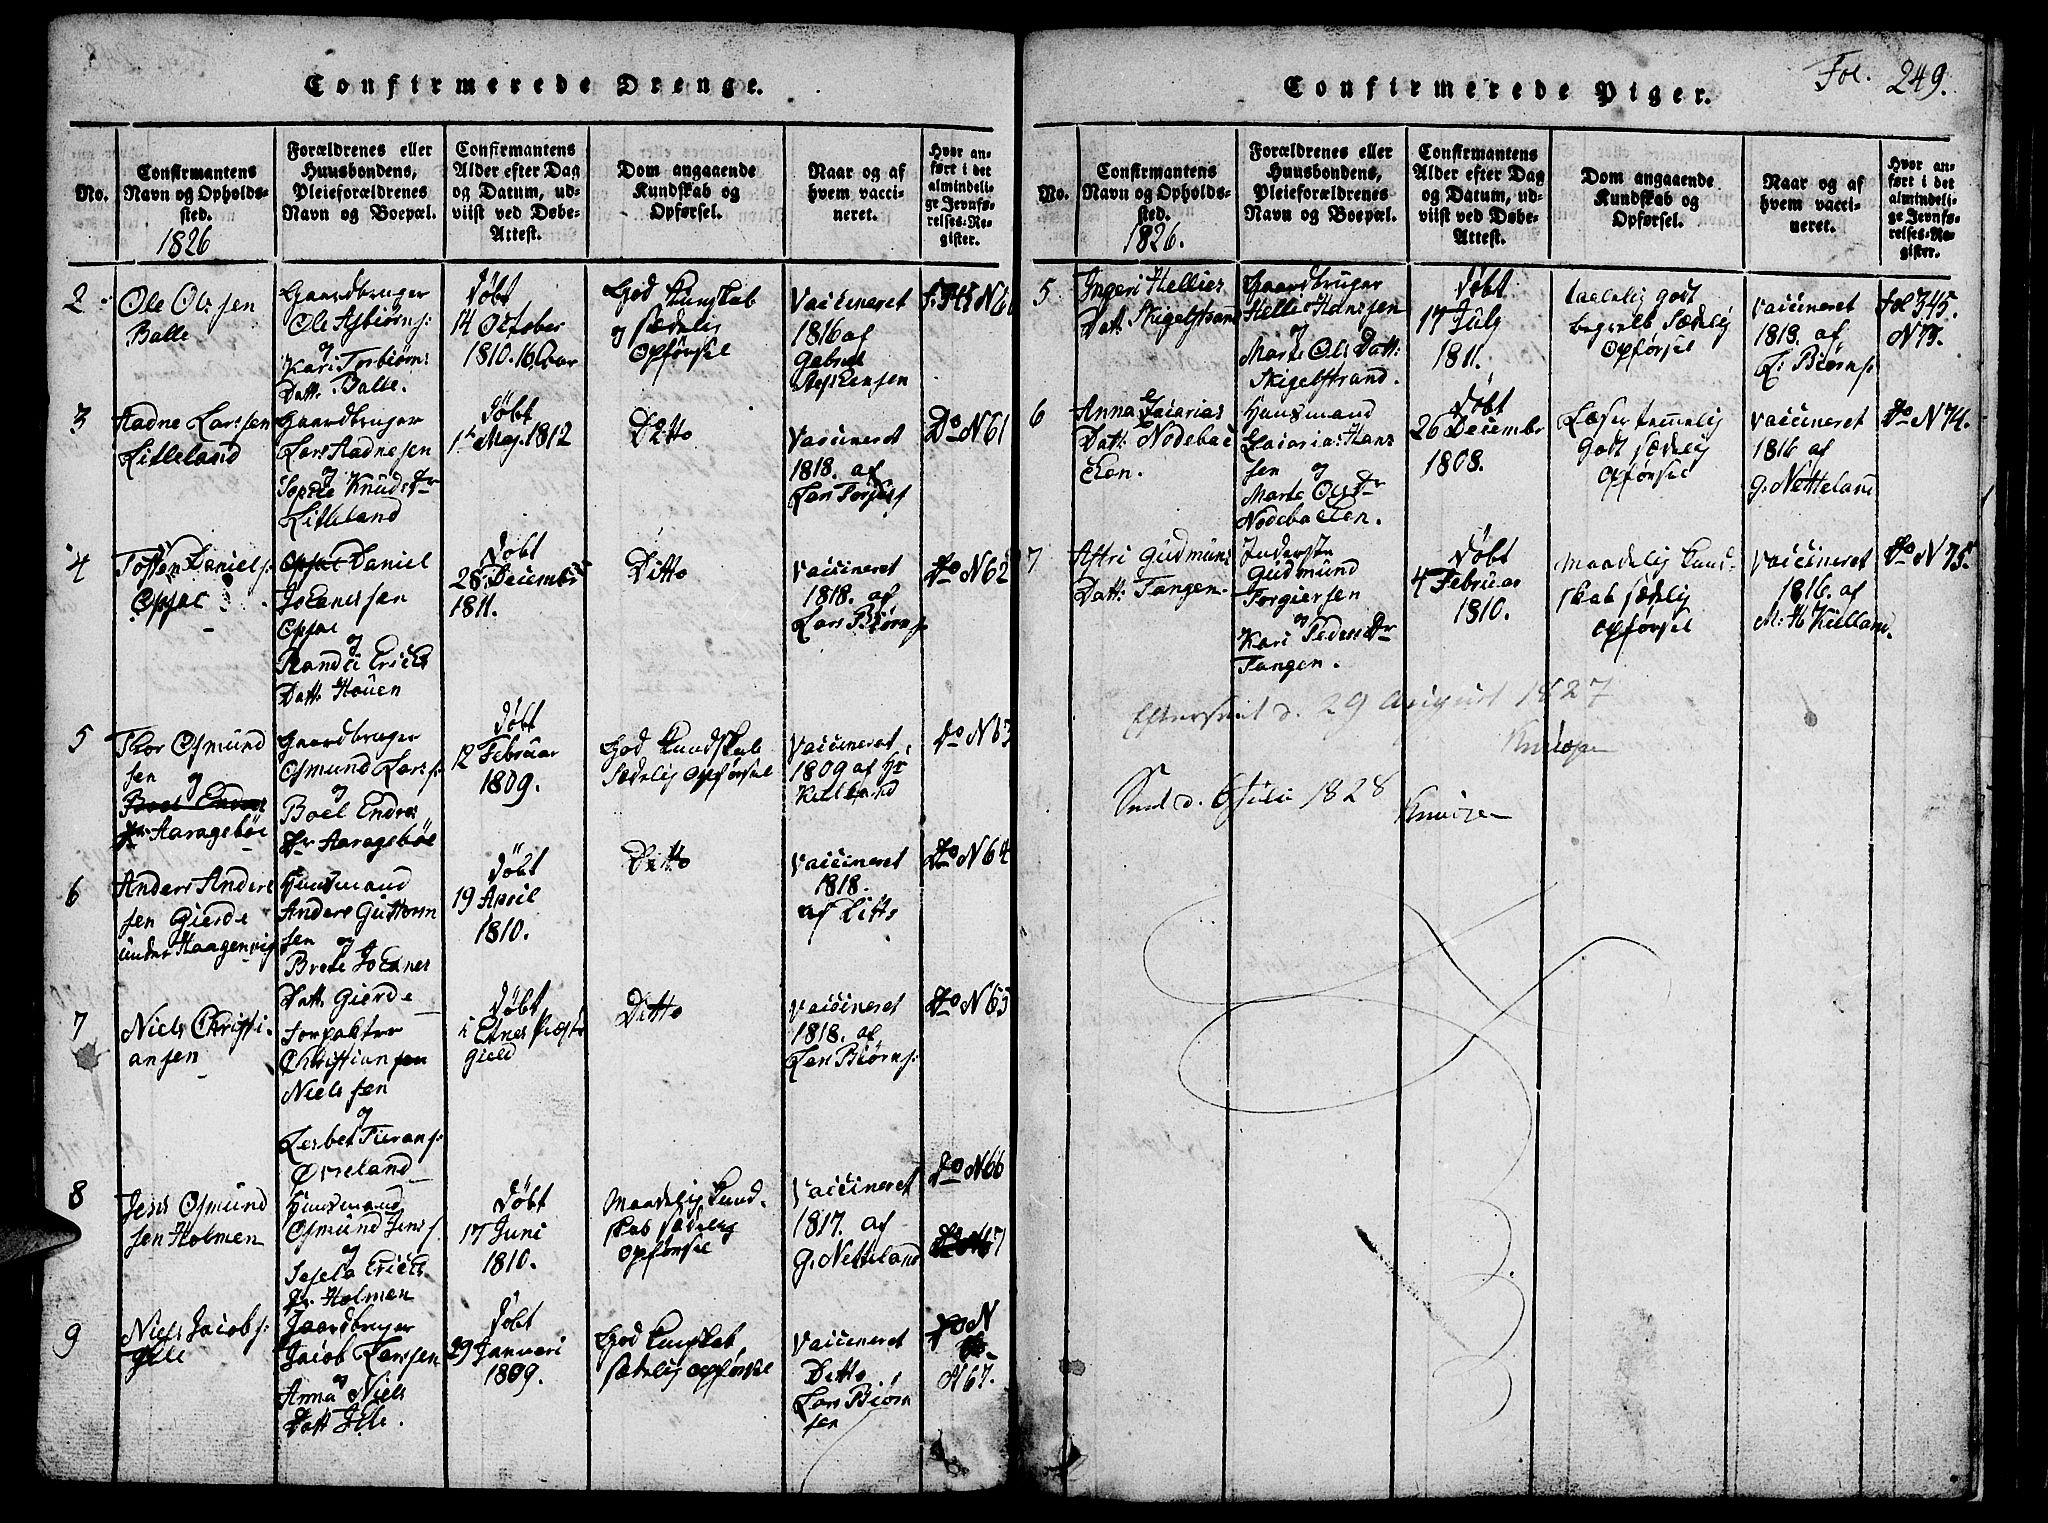 Confirmerede Drenge.
No.
Confirmantens
Navn og Opholds-
sted.
1826
Forældrenes eller
Huusbondens,
Pleieforældrenes
Navn og Boepæl.
Confirmantens
Alder efter Dag
og Datum, ud-
viist ved Døbe-
Attest.
Dom angaaende
Kundskab og
Opførsel.
Naar og af
hvem vacci-
neret.
Hvor an-
ført i det
almindeli-
ge Jevnfø-
relses-Re-
gister.
2
Ole Olsen
Balle
Gaardbruger
Ole Asbiørns:
og
Kari Torbiørns
Datt: Balle.
Døbt
14 October
1810. 16 Aar
God Kunskab
og sædelig
Opførsel
Vaccineret
1816 af
Gabriel
3
Aadne Larssen
Litleland
Gaardbruger
Lars Aadnesen
og
Knuds Dr
Litleland
Døbt
1te Maj. 1812
Ditto
Vaccineret
1818. af
Do N 61
4
Daniels:
Opsal
Daniel
Johannessen
Opsal
og
Randi Erichs
Datt: Houen
Døbt
28 December
1811.
Ditto
Vaccineret
1818. af
Lars Biørns:
Do N 62
5
Thor Osmund
sen
og
Boel Endres
Dr Aaragebøe
Gaardbruger
Osmund Lars:
og
Boel Endres
Dr Aaragebøe
Døbt
12 Februar
1809.
God Kundskab
Sædelig Opførsel
Vaccineret
1809 af Hr
Kielland
Do N 63
6
Anders Anders
sen Gierde
under Haagenvig
Huusmand
Anders Guttorm
sen og
Brete Johannes
Datt: Gierde
Døbt
19 April
1810.
Ditto
Vaccineret
1818.
af Ditto
Do N 64
7
Niels Christi-
ansen
Forpakter
Christiansen
Nielssen
og
Øvreland
Døbt
i Etnes Præste
Gield
Ditto
Vaccineret
1818. af
Lars Biørns:
Do N 65
8
Jens Osmund
sen Holmen
Huusmand
Osmund Jens:
og
Sesela Erichs
Dr. Holmen
Døbt
17 Juni
1810.
Maadelig Kund-
skab sædelig
Opførsel
Vaccineret
1817. af
G. Netteland
Do N 66
9
Niels Jacobs:
Gaardbruger
Jacob Larssen
og
Anna Niels
Datt
Døbt
29 Januari
1809.
God Kunskab
sædelig opførsel
Vaccineret
Ditto
Lars Biørn
sen
Do N
N 67.
Confirmerede Piger.
Fol. 249.
No.
Confirmantens
Navn og Opholds-
sted.
1826.
Forældrenes eller
Huusbondens,
Pleieforældrenes
Navn og Boepæl.
Confirmantens
Alder efter Dag
og Datum, ud-
viist ved Døbe-
Attest.
Dom angaaende
Kundskab og
Opførsel.
Naar og af
hvem vacci-
neret.
Hvor an-
ført i det
almindeli-
ge Jevnfø-
relses-Re-
gister.
5
Ingeri Hellies
Datt: Skigelstrand
Gaardbruger
Hellie Hanssen
og
Marte Ols Datt:
Skigelstrand.
Døbt
17 July
1811.
taalelig godt
begreb Sædelig
Opførsel
Vaccineret
1818. af
L: Biørns:
fol 345.
N 73.
6
Anna Zacarias
Datt: Nodebac
Huusmand
Zacarias Hans
sen og
Marte Ols Dr
Døbt
26 December
1808.
Læser temmelig
godt sædelig
Opførsel
Vaccineret
1816 af
G. Netteland
Do N 74.
7
Astri Gudmuns
Datt: Tangen
Inderste
Gudmund
Torgiersen
og
Kari Peders Dr
Tangen.
Døbt
4 Februar
1810.
Maadelig Kund-
skab sædelig
Opførsel
Vaccineret
1816. af
M: H Kielland.
Do N 75.
Efterseet d. 29 August 1827
Seet d. 6 Juli 1828